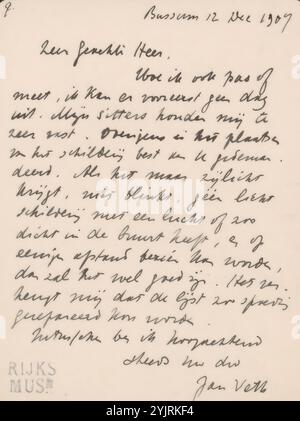 9.
Bussum 12 Dec 1907
Zeer Geachte Heer,
Hoe ik ook pas of
meet, ik kan er vooreerst geen dag
uit. Mijn sitters houden mij te
zeer vast. Overigens is het plaatsen
van het schilderij best aan U gedeman-
deerd. Als het maar zijlicht
krijgt, niet blinkt, geen licht
schilderij met een lucht of zoo
dicht in de buurt heeft, en op
eenigen afstand gezien kan worden,
dan zal het wel goed zijn. Het ver-
heugt mij dat de lijst zoo spoedig
gerepareerd kon worden.
Intusschen ben ik hoogachtend
steeds uw dw
Jan Veth
RIJKS
MUSM
alamy
Image ID: 2YJRKF4
www.alamy.com